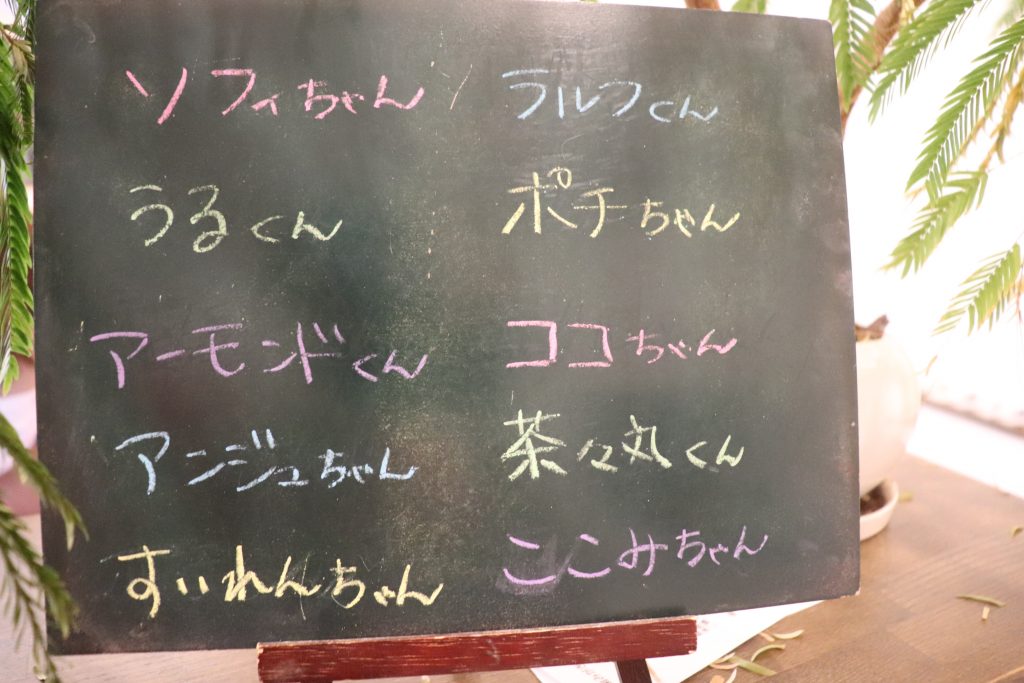 ソフィちゃん
ラルフくん
うるくん
ポチちゃん
アーモンドくん
ココちゃん
アンジュちゃん
茶々丸くん
すいれんちゃん
ここみちゃん